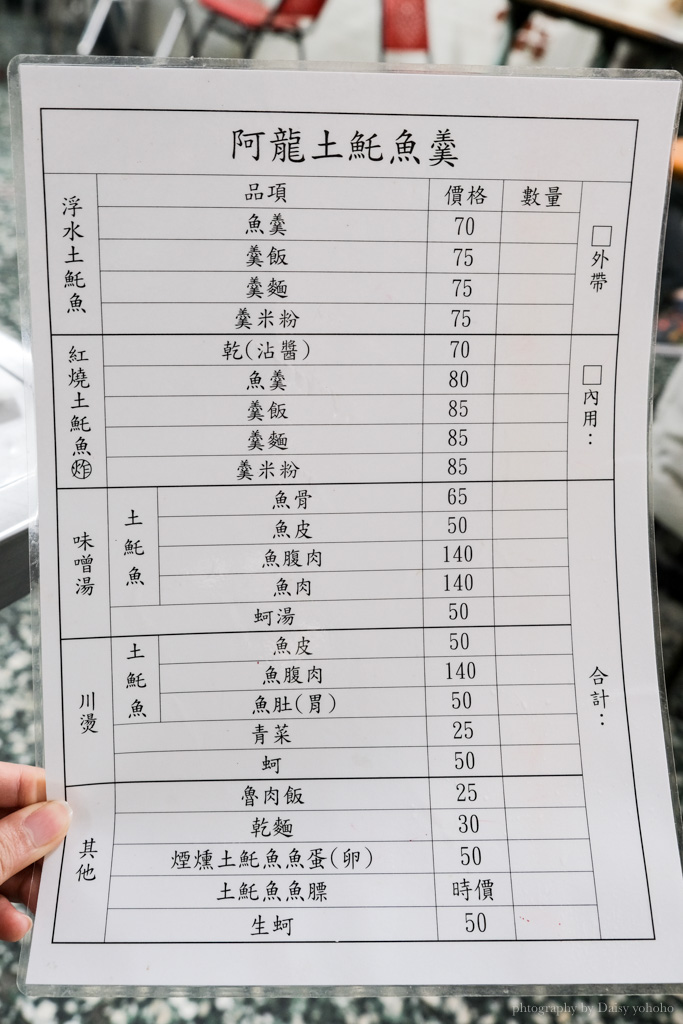 阿龍土魠魚羹
品項 價格 數量
浮水土魠魚
魚羹 70
羹飯 75
羹麵 75
羹米粉 75
□外帶
紅燒土魠魚炸
乾(沾醬) 70
魚羹 80
羹飯 85
羹麵 85
羹米粉 85
□內用：
味噌湯
土魠魚
魚骨 65
魚皮 50
魚腹肉 140
魚肉 140
蚵湯 50
川燙
土魠魚
魚皮 50
魚腹肉 140
魚肚(胃) 50
青菜 25
蚵 50
合計：
其他
魯肉飯 25
乾麵 30
煙燻土魠魚魚蛋(卵) 50
土魠魚魚膘 時價
生蚵 50
photography by Daisy yohoho